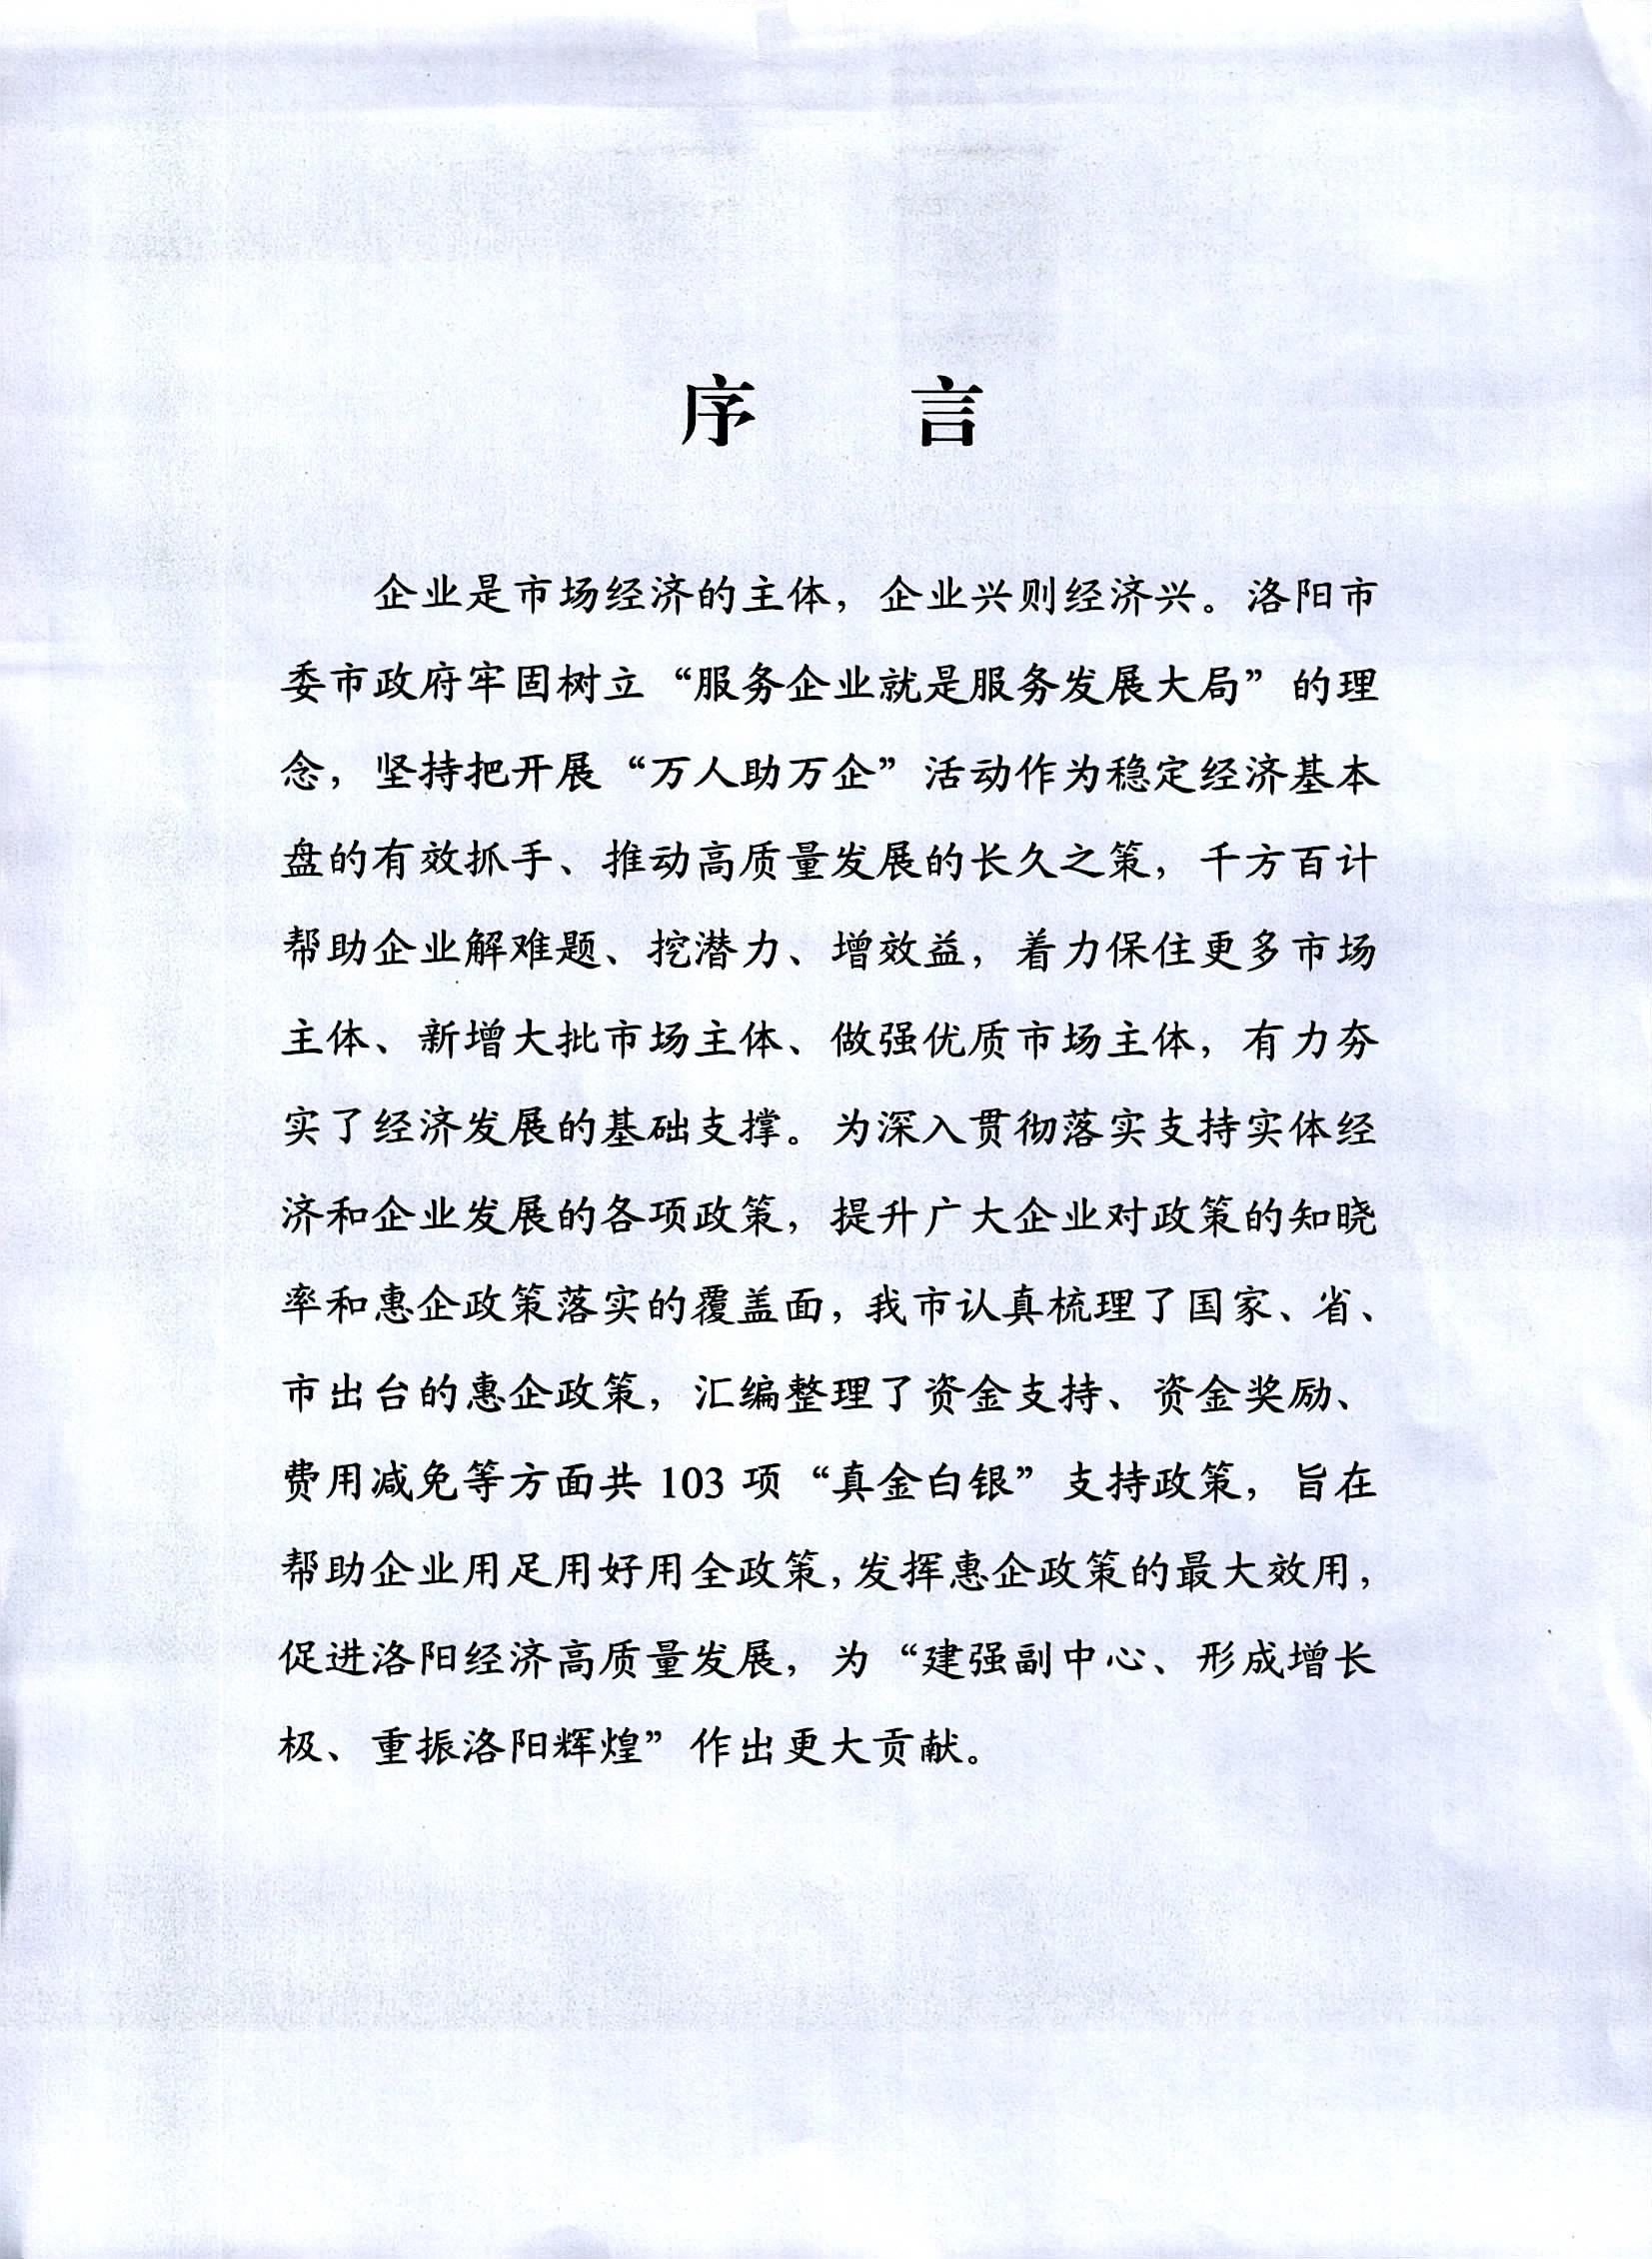 序 言
企业是市场经济的主体，企业兴则经济兴。洛阳市
委市政府牢固树立“服务企业就是服务发展大局”的理
念，坚持把开展“万人助万企”活动作为稳定经济基本
盘的有效抓手、推动高质量发展的长久之策，千方百计
帮助企业解难题、挖潜力、增效益，着力保住更多市场
主体、新增大批市场主体、做强优质市场主体，有力夯
实了经济发展的基础支撑。为深入贯彻落实支持实体经
济和企业发展的各项政策，提升广大企业对政策的知晓
率和惠企政策落实的覆盖面，我市认真梳理了国家、省、
市出台的惠企政策，汇编整理了资金支持、资金奖励、
费用减免等方面共 103 项“真金白银”支持政策，旨在
帮助企业用足用好用全政策，发挥惠企政策的最大效用，
促进洛阳经济高质量发展，为“建强副中心、形成增长
极、重振洛阳辉煌”作出更大贡献。